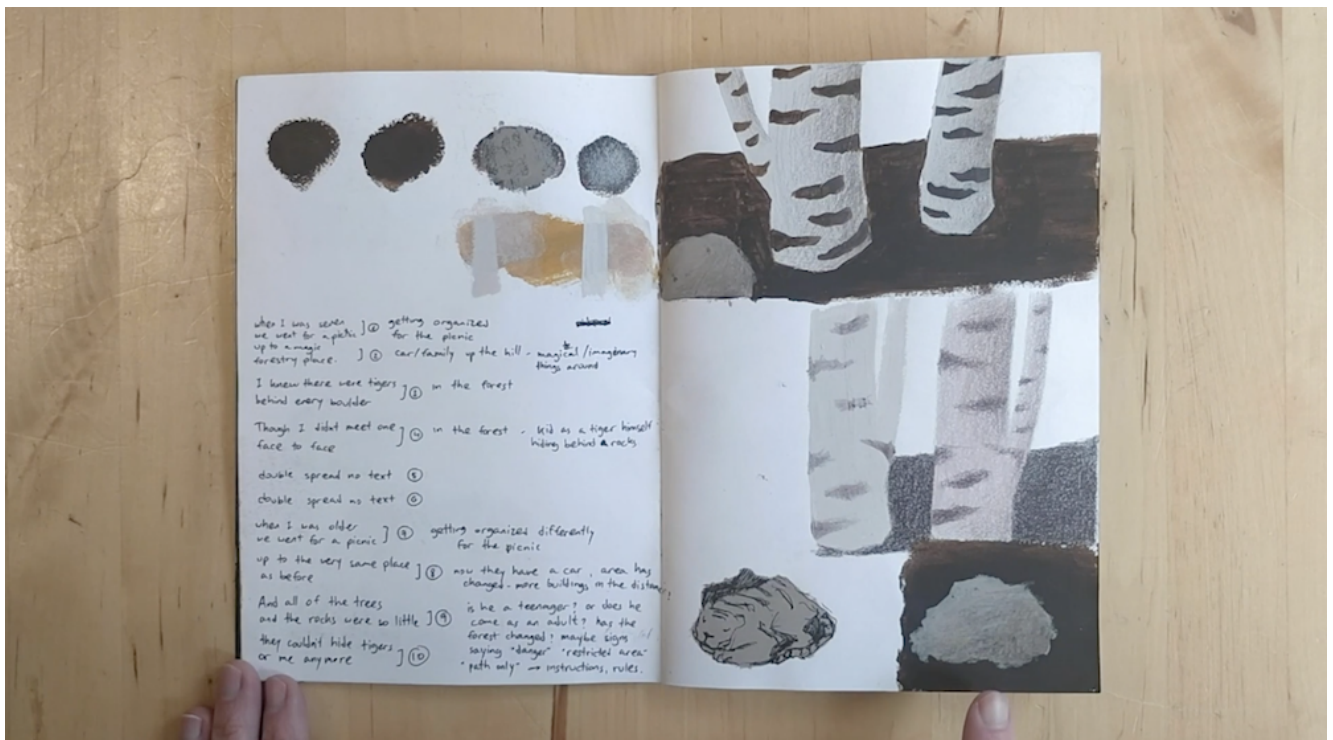 when I was seven
we went for a picnic
up to a magic
forestry place.
] ① getting organized
for the picnic
] ② car/family up the hill - magical/imaginary
things around
I knew there were tigers
behind every boulder
] ③ in the forest
Though I didn't meet one
face to face
] ④ in the forest - kid as a tiger himself
hiding behind rocks
double spread no text ⑤
double spread no text ⑥
when I was older
we went for a picnic
] ⑦ getting organized differently
for the picnic
up to the very same place
as before
] ⑧ now they have a car, area has
changed - more buildings in the distance?
And all of the trees
and the rocks were so little
] ⑨ is he a teenager? or does he
come as an adult? has the
forest changed? maybe signs
saying "danger" "restricted area"
"path only" → instructions, rules.
they couldn't hide tigers
or me anymore
] ⑩